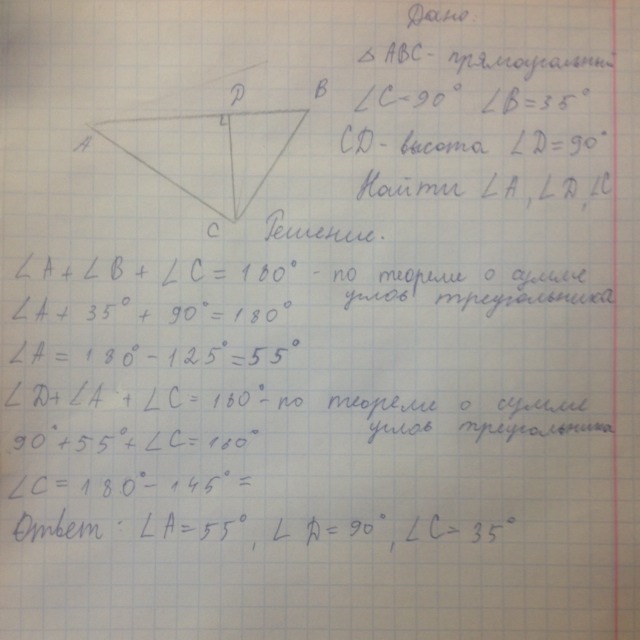 Дано:
△ ABC - прямоугольный
∠C=90° ∠B=35°
CD - высота ∠D=90°
Найти ∠A, ∠D, ∠C
D
B
A
C
Решение.
∠A + ∠B + ∠C = 180° - по теореме о сумме
углов треугольника
∠A + 35° + 90° = 180°
∠A = 180° - 125° = 55°
∠D + ∠A + ∠C = 180° - по теореме о сумме
углов треугольника
90° + 55° + ∠C = 180°
∠C = 180° - 145° =
Ответ: ∠A = 55°, ∠D = 90°, ∠C = 35°